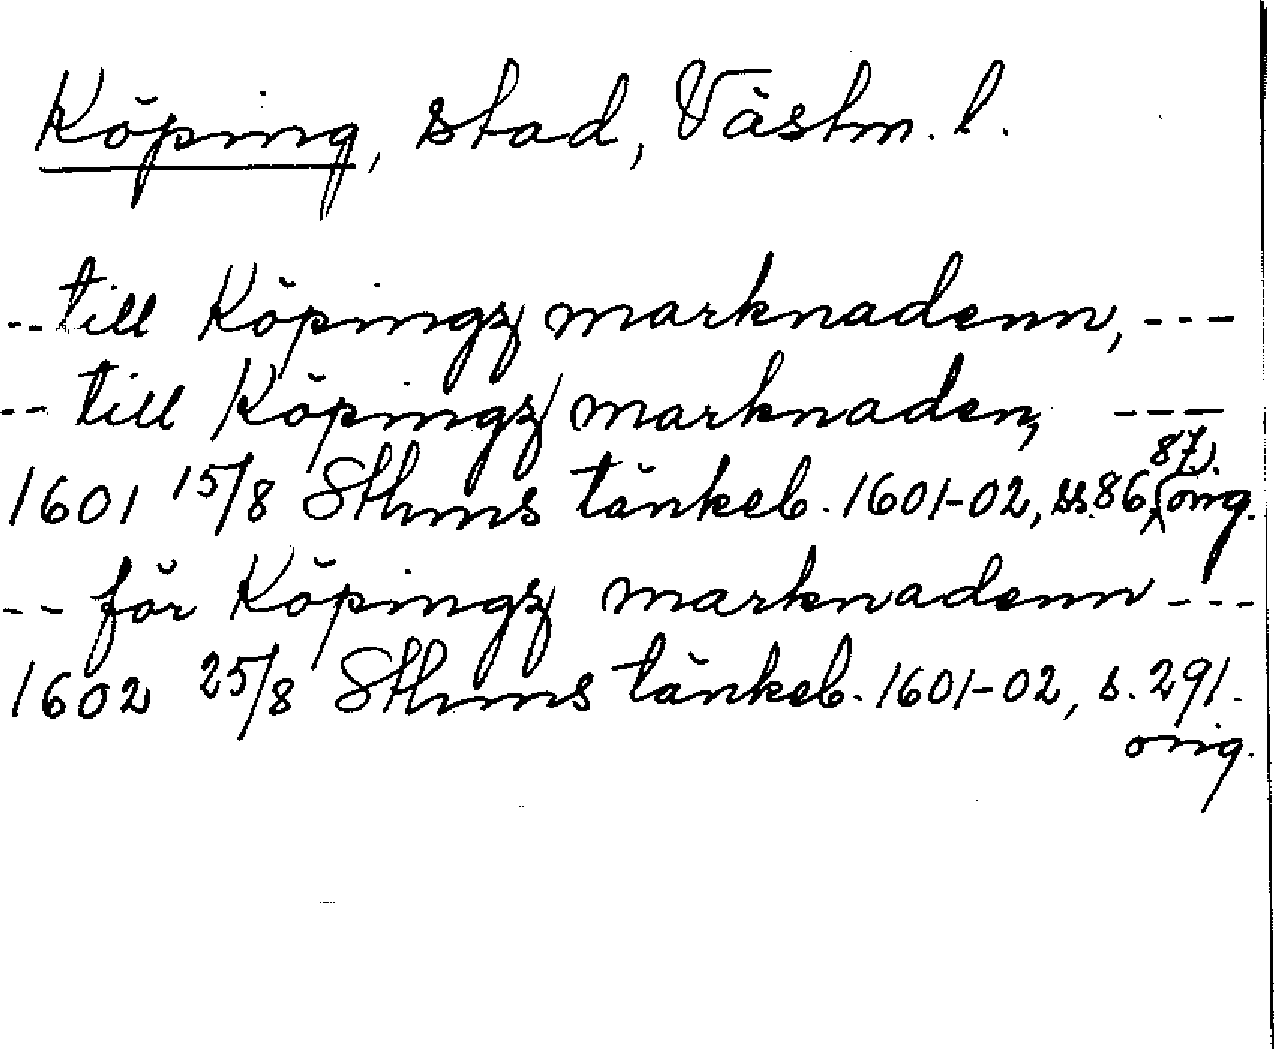 Köping, stad, Västm. l.
-- till Köpingz marknadenn, ---
-- till Köpingz marknaden, ---
1601 15/8 Sthms tänkeb. 1601-02, ss. 86, 87. orig.
-- för Köpingz marknadenn ---
1602 25/8 Sthms tänkeb. 1601-02, s. 291.
orig.